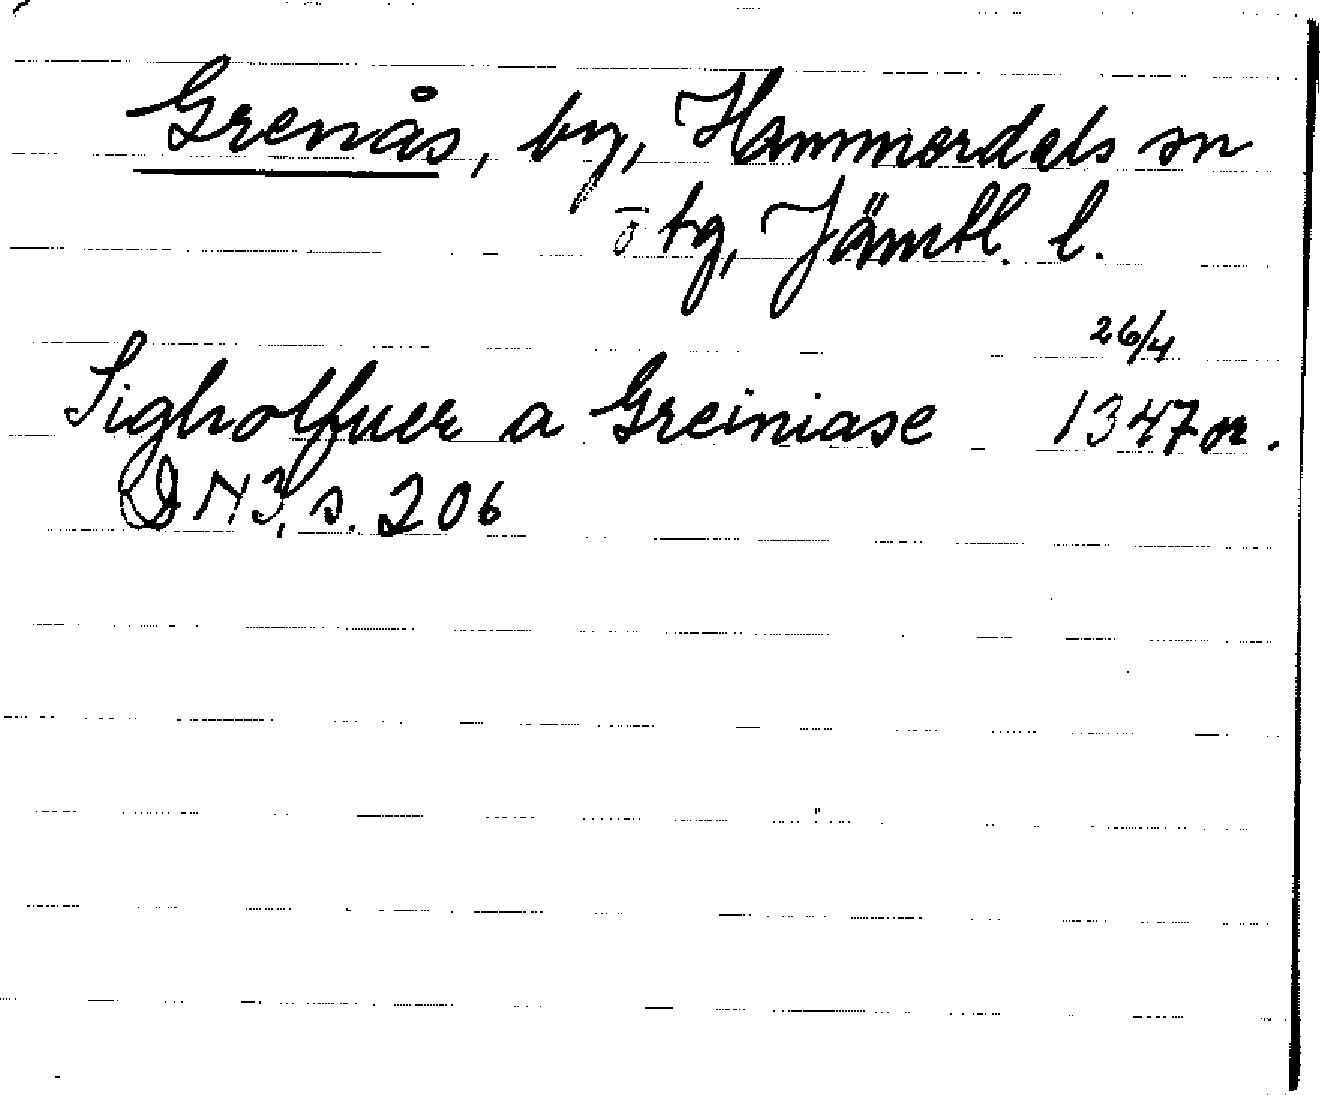 Grenås, by, Hammerdals sn
ō tg, Jämtl. l.
26/4
Sigholfuer a Greiniase 1347 or.
DN3, s. 206